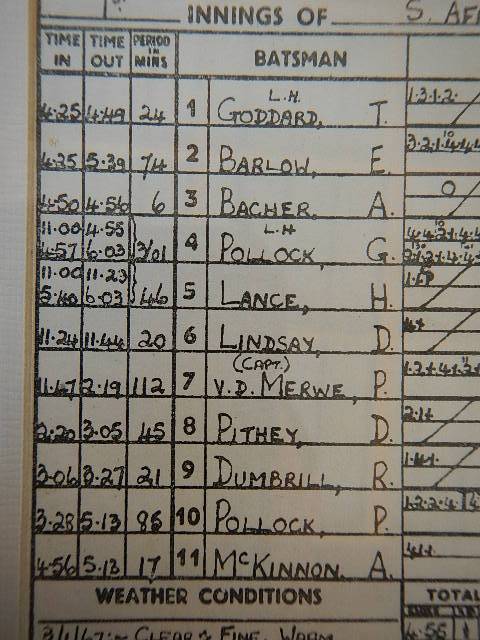 INNINGS OF S. AF
TIME IN TIME OUT PERIOD IN MINS BATSMAN
4.25 4.49 24 1 L.H. GODDARD, T. 1.3.1.2.
4.25 5.39 74 2 BARLOW, E.
4.50 4.56 6 3 BACHER. A. 0
11.00 4.55
4.57 6.03 301 4 L.H. POLLOCK, G.
11.00 11.23
5.40 6.03 46 5 LANCE, H.
11.24 11.44 20 6 LINDSAY, D.
11.47 2.19 112 7 (CAPT.) V.D. MERWE, P.
2.20 3.05 45 8 PITHEY, D.
3.06 3.27 21 9 DUMBRILL, R.
3.28 5.13 10 POLLOCK, P.
4.56 5.13 17 11 McKINNON. A.
WEATHER CONDITIONS TOTAL
CLEAR & FINE. WARM